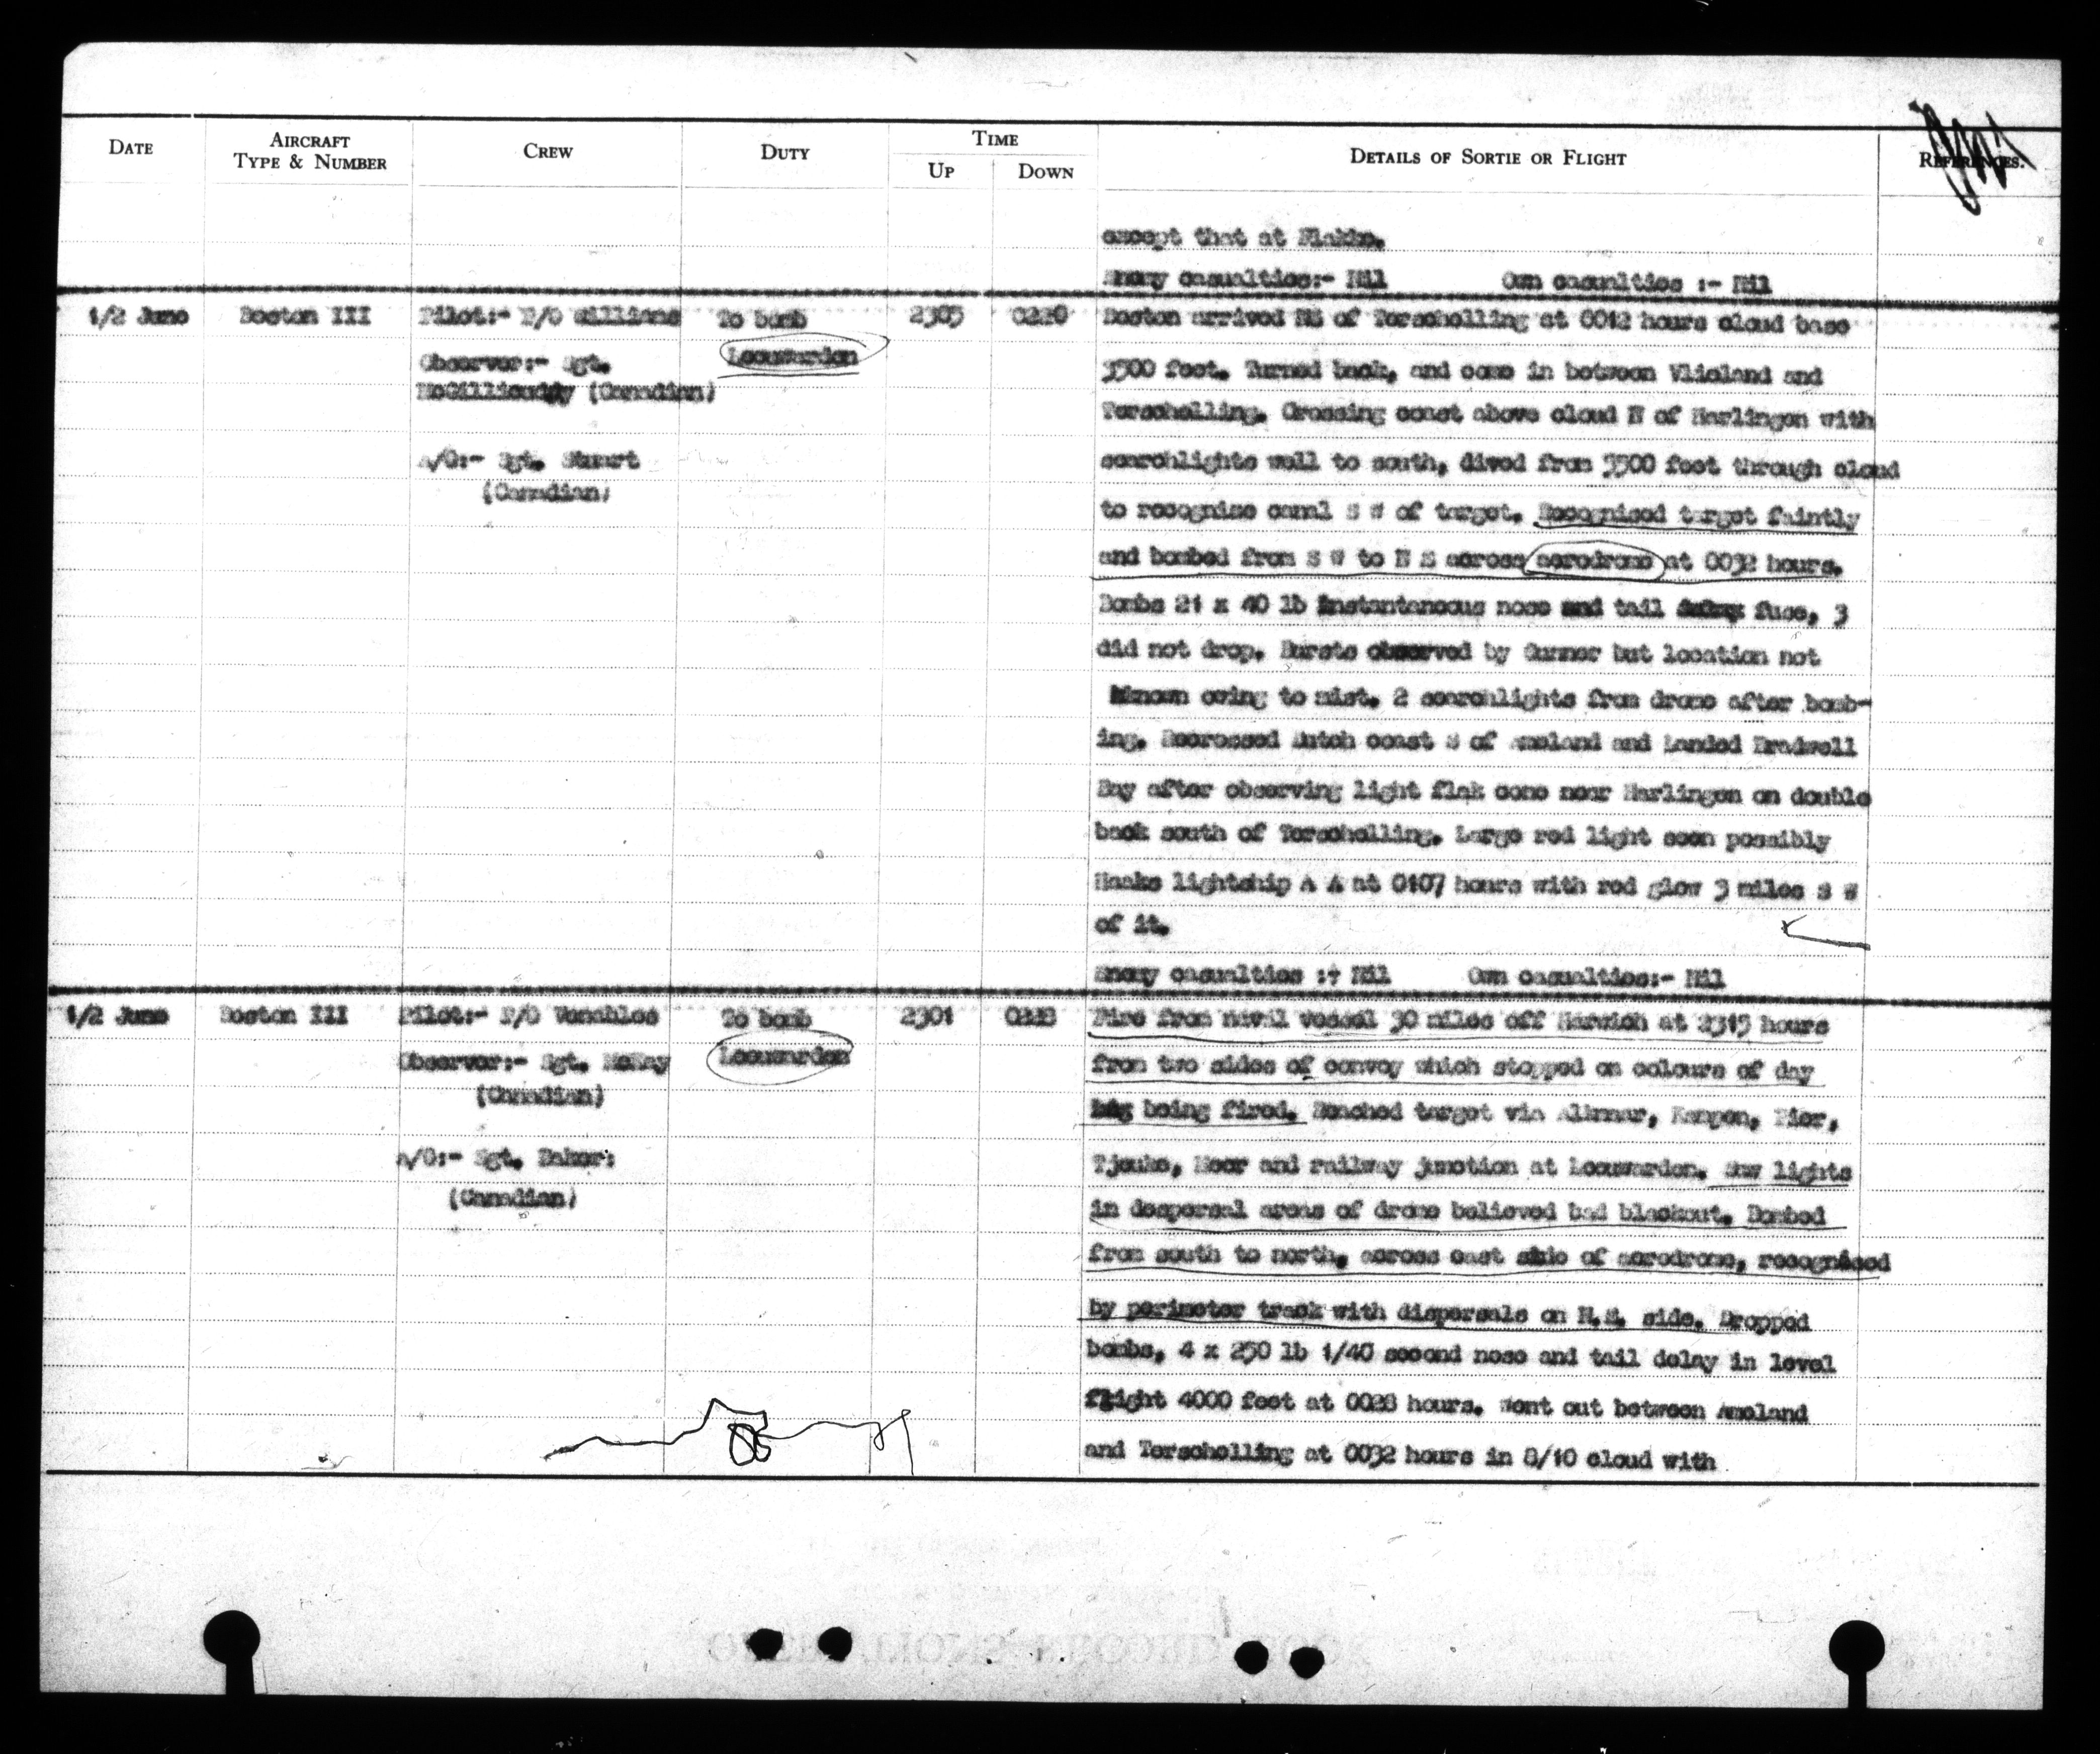 DATE
AIRCRAFT
TYPE & NUMBER
CREW
DUTY
TIME
UP
DOWN
DETAILS OF SORTIE OR FLIGHT
REFERENCES.
except that at Flakke.
Enemy casualties:- Nil Own casualties :- Nil
1/2 June Boston III Pilot:- P/O Williams To bomb 2305 0220
Leeuwarden
Observer:- Sgt.
McGillicuddy (Canadian)
A/G:- Sgt. Stuart
(Canadian)
Boston arrived NE of Terschelling at 0012 hours cloud base
3500 feet. Turned back, and came in between Vlieland and
Terschelling. Crossing coast above cloud N of Harlingen with
searchlights well to south, dived from 3500 feet through cloud
to recognise canal S W of target. Recognised target faintly
and bombed from S W to N E across aerodrome at 0032 hours.
Bombs 21 x 40 lb instantaneous nose and tail fuse, 3
did not drop. Bursts observed by Gunner but location not
known owing to mist. 2 searchlights from drome after bomb-
ing. Recrossed Dutch coast S of Ameland and Landed Bradwell
Bay after observing light flak cone near Harlingen on double
back south of Terschelling. Large red light seen possibly
Haaks lightship A A at 0107 hours with red glow 3 miles S W
of it.
Enemy casualties :- Nil Own casualties:- Nil
1/2 June Boston III Pilot:- P/O Venables To bomb 2301
Leeuwarden
Observer:- Sgt. McKay
(Canadian)
A/G:- Sgt. Baker:
(Canadian)
Fire from naval vessel 30 miles off Harwich at 2315 hours
from two sides of convoy which stopped on colours of day
being fired. Reached target via Alkmar, Kampen, Pier,
Tjeuke, Meer and railway junction at Leeuwarden. Saw lights
in despersal areas of drome believed bad blackout. Bombed
from south to north, across east side of aerodrome, recognised
by perimeter track with dispersals on N.E. side. Dropped
bombs, 4 x 250 lb 1/40 second nose and tail delay in level
flight 4000 feet at 0028 hours. Went out between Ameland
and Terschelling at 0032 hours in 8/10 cloud with